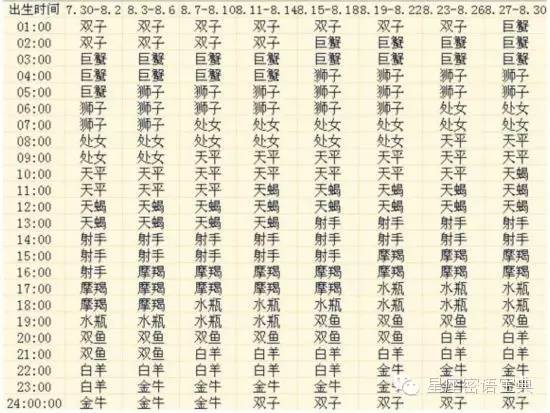 出生时间 7.30-8.2 8.3-8.6 8.7-8.10 8.11-8.14 8.15-8.18 8.19-8.22 8.23-8.26 8.27-8.30
01:00 双子 双子 双子 双子 双子 双子 双子 巨蟹
02:00 双子 双子 双子 双子 巨蟹 巨蟹 巨蟹 巨蟹
03:00 巨蟹 巨蟹 巨蟹 巨蟹 巨蟹 巨蟹 巨蟹 巨蟹
04:00 巨蟹 巨蟹 巨蟹 巨蟹 狮子 狮子 狮子 狮子
05:00 巨蟹 狮子 狮子 狮子 狮子 狮子 狮子 狮子
06:00 狮子 狮子 狮子 狮子 狮子 狮子 处女 处女
07:00 狮子 狮子 处女 处女 处女 处女 处女 处女
08:00 处女 处女 处女 处女 处女 处女 天平 天平
09:00 处女 处女 天平 天平 天平 天平 天平 天平
10:00 天平 天平 天平 天平 天平 天平 天平 天蝎
11:00 天平 天平 天平 天蝎 天蝎 天蝎 天蝎 天蝎
12:00 天蝎 天蝎 天蝎 天蝎 天蝎 天蝎 天蝎 天蝎
13:00 天蝎 天蝎 天蝎 天蝎 射手 射手 射手 射手
14:00 射手 射手 射手 射手 射手 射手 射手 射手
15:00 射手 射手 射手 射手 射手 摩羯 摩羯 摩羯
16:00 射手 摩羯 摩羯 摩羯 摩羯 摩羯 摩羯 摩羯
17:00 摩羯 摩羯 摩羯 摩羯 摩羯 水瓶 水瓶 水瓶
18:00 摩羯 摩羯 水瓶 水瓶 水瓶 水瓶 水瓶 水瓶
19:00 水瓶 水瓶 水瓶 水瓶 双鱼 双鱼 双鱼 双鱼
20:00 双鱼 双鱼 双鱼 双鱼 双鱼 白羊 白羊 白羊
21:00 双鱼 双鱼 白羊 白羊 白羊 白羊 白羊 白羊
22:00 白羊 白羊 白羊 白羊 白羊 金牛 金牛 金牛
23:00 白羊 金牛 金牛 金牛 金牛 金牛
24:00:00 金牛 金牛 金牛 双子 双子 双子 双子 双子
星座密语宝典